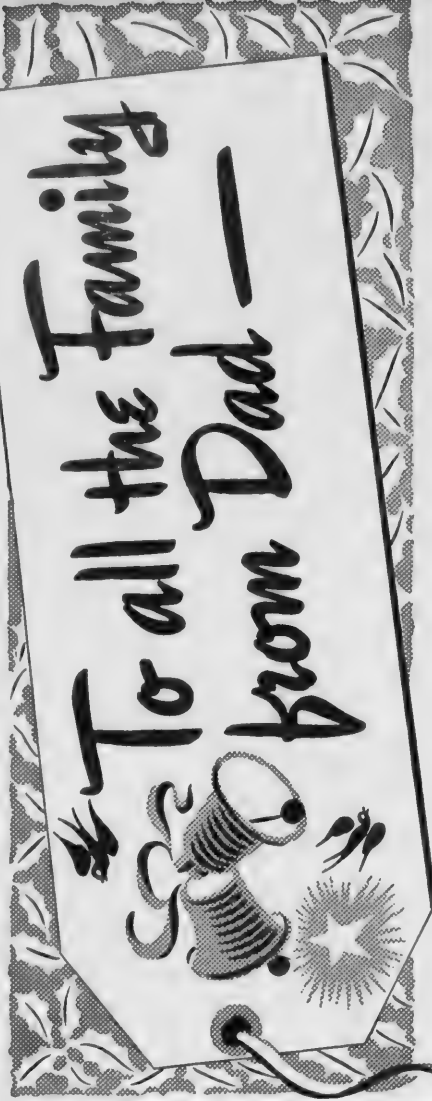 To all the Family
from Dad —